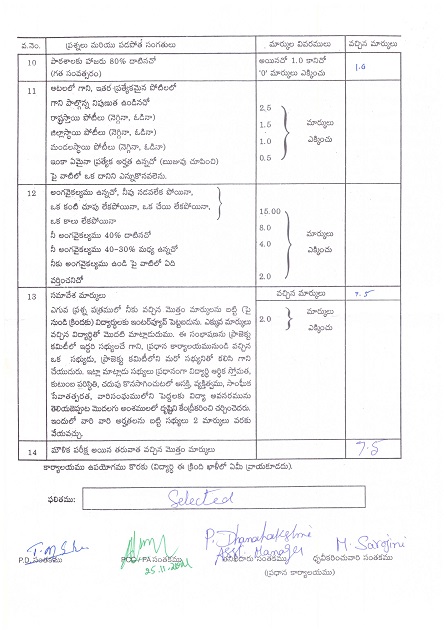 వ.నెం. ప్రశ్నలు మరియు పడపోత సంగతులు మార్కుల వివరములు వచ్చిన మార్కులు
10 పాఠశాలకు హాజరు 80% దాటినచో అయినచో 1.0 కానిచో 1.0
(గత సంవత్సరం) '0' మార్కులు ఎక్కించు
11 ఆటలలో గాని, ఇతర ప్రత్యేకమైన పోటీలలో
గాని పాల్గొన్న నిపుణుత ఉండినచో 2.5
రాష్ట్రస్థాయి పోటీలు (నెగ్గినా, ఓడినా) 1.5 మార్కులు
జిల్లాస్థాయి పోటీలు (నెగ్గినా, ఓడినా) 1.0 ఎక్కించు
మండలస్థాయి పోటీలు (నెగ్గినా, ఓడినా)
ఇంకా ఏమైనా ప్రత్యేక అర్హత ఉన్నచో (ఋజువు చూపించి) 0.5
పై వాటిలో ఒక దానిని ఎన్నుకొనవలెను.
12 అంగవైకల్యము ఉన్నచో, నీవు నడవలేక పోయినా,
ఒక కంటి చూపు లేకపోయినా, ఒక చేయి లేకపోయినా, 15.00
ఒక కాలు లేకపోయినా 8.0
నీ అంగవైకల్యము 40% దాటినచో 4.0 మార్కులు
నీ అంగవైకల్యము 40-30% మధ్య ఉన్నచో ఎక్కించు
నీకు అంగవైకల్యము ఉండి పై వాటిలో ఏది 2.0
వర్తించనిచో
13 సమావేశ మార్కులు వచ్చిన మార్కులు 7.5
ఎగువ ప్రశ్న పత్రములో నీకు వచ్చిన మొత్తం మార్కులను బట్టి (పై
నుండి క్రిందకు) విద్యార్థులకు ఇంటర్వ్యూవ్ పెట్టబడును. ఎక్కువ మార్కులు 2.0 మార్కులు
వచ్చిన విద్యార్థితో మొదటి మాట్లాడుదుము. ఈ సంభాషణను ప్రాజెక్టు ఎక్కించు
కమిటీలో ఇద్దరి సభ్యులచే గాని, ప్రధాన కార్యాలయమునుండి వచ్చిన
ఒక సభ్యుడు, ప్రాజెక్టు కమిటీలోని మరో సభ్యునితో కలిసి గాని
చేయుదురు. ఇట్లా మాట్లాడు సభ్యులు ప్రధానంగా విద్యార్థి ఆర్థిక స్తోమత,
కుటుంబ పరిస్థితి, చదువు కొనసాగించుటలో ఆసక్తి, వ్యక్తిత్వము, సాంఘీక
సేవాతత్పరత, వారిసంఘములోని పెద్దలకు విద్యా అవసరమును
తెలియజెప్పుట మొదలగు అంశములలో దృష్టిని కేంద్రీకరించి చర్చించెదరు.
ఇందులో వారి వారి అర్హతలను బట్టి సభ్యులు 2 మార్కులు వరకు
వేయవచ్చు.
14 మౌళిక పరీక్ష అయిన తరువాత వచ్చిన మొత్తం మార్కులు 7.5
కార్యాలయము ఉపయోగము కొరకు (విద్యార్థి ఈ క్రింది ఖాళీలో ఏమీ వ్రాయకూడదు).
ఫలితము: Selected
P. Dhanalakshmi
Asst. Manager M. Sarojini
P.D. సంతకము PCO / PA సంతకము సంతకము ధృవీకరించువారి సంతకము
25.11.2021 (ప్రధాన కార్యాలయము)